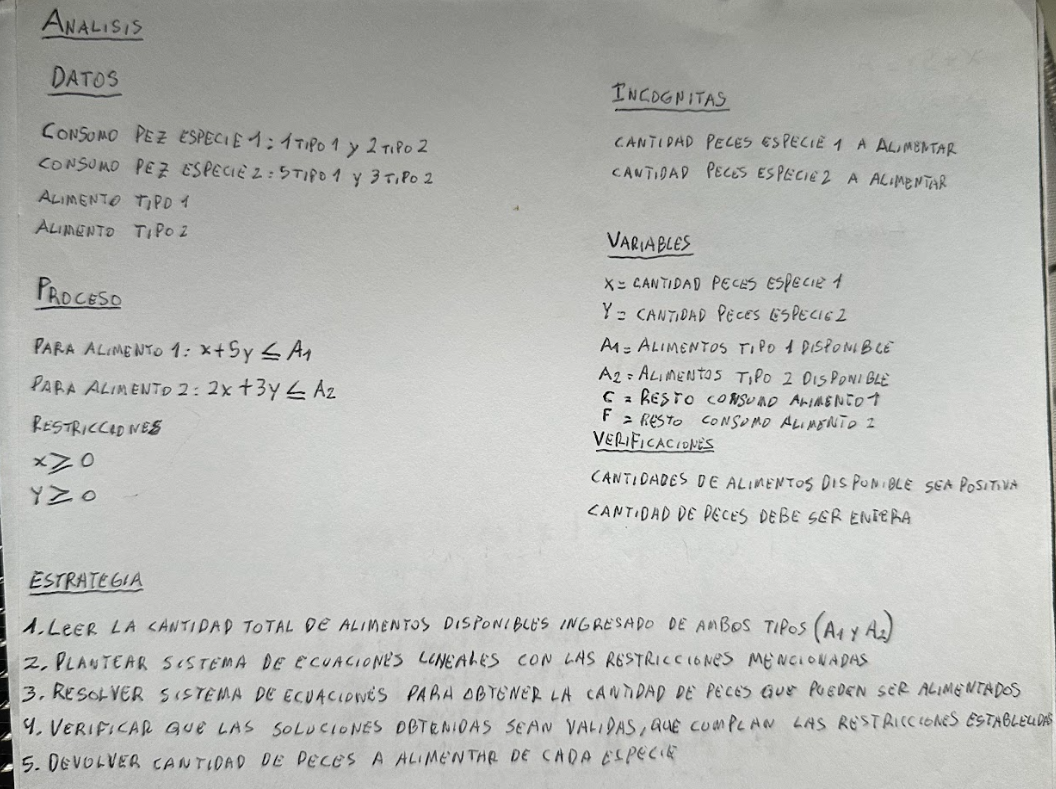 ANALISIS
DATOS
CONSUMO PEZ ESPECIE 1: 1 TIPO 1 Y 2 TIPO 2
CONSUMO PEZ ESPECIE 2: 5 TIPO 1 Y 3 TIPO 2
ALIMENTO TIPO 1
ALIMENTO TIPO 2
PROCESO
PARA ALIMENTO 1: x+5y ≤ A1
PARA ALIMENTO 2: 2x+3y ≤ A2
RESTRICCIONES
x ≥ 0
Y ≥ 0
INCOGNITAS
CANTIDAD PECES ESPECIE 1 A ALIMENTAR
CANTIDAD PECES ESPECIE 2 A ALIMENTAR
VARIABLES
X = CANTIDAD PECES ESPECIE 1
Y = CANTIDAD PECES ESPECIE 2
A1 = ALIMENTOS TIPO 1 DISPONIBLE
A2 = ALIMENTOS TIPO 2 DISPONIBLE
C = RESTO CONSUMO ALIMENTO 1
F = RESTO CONSUMO ALIMENTO 2
VERIFICACIONES
CANTIDADES DE ALIMENTOS DISPONIBLE SEA POSITIVA
CANTIDAD DE PECES DEBE SER ENTERA
ESTRATEGIA
1. LEER LA CANTIDAD TOTAL DE ALIMENTOS DISPONIBLES INGRESADO DE AMBOS TIPOS (A1 y A2)
2. PLANTEAR SISTEMA DE ECUACIONES LINEALES CON LAS RESTRICCIONES MENCIONADAS
3. RESOLVER SISTEMA DE ECUACIONES PARA OBTENER LA CANTIDAD DE PECES QUE PUEDEN SER ALIMENTADOS
4. VERIFICAR QUE LAS SOLUCIONES OBTENIDAS SEAN VALIDAS, QUE CUMPLAN LAS RESTRICCIONES ESTABLECIDAS
5. DEVOLVER CANTIDAD DE PECES A ALIMENTAR DE CADA ESPECIE